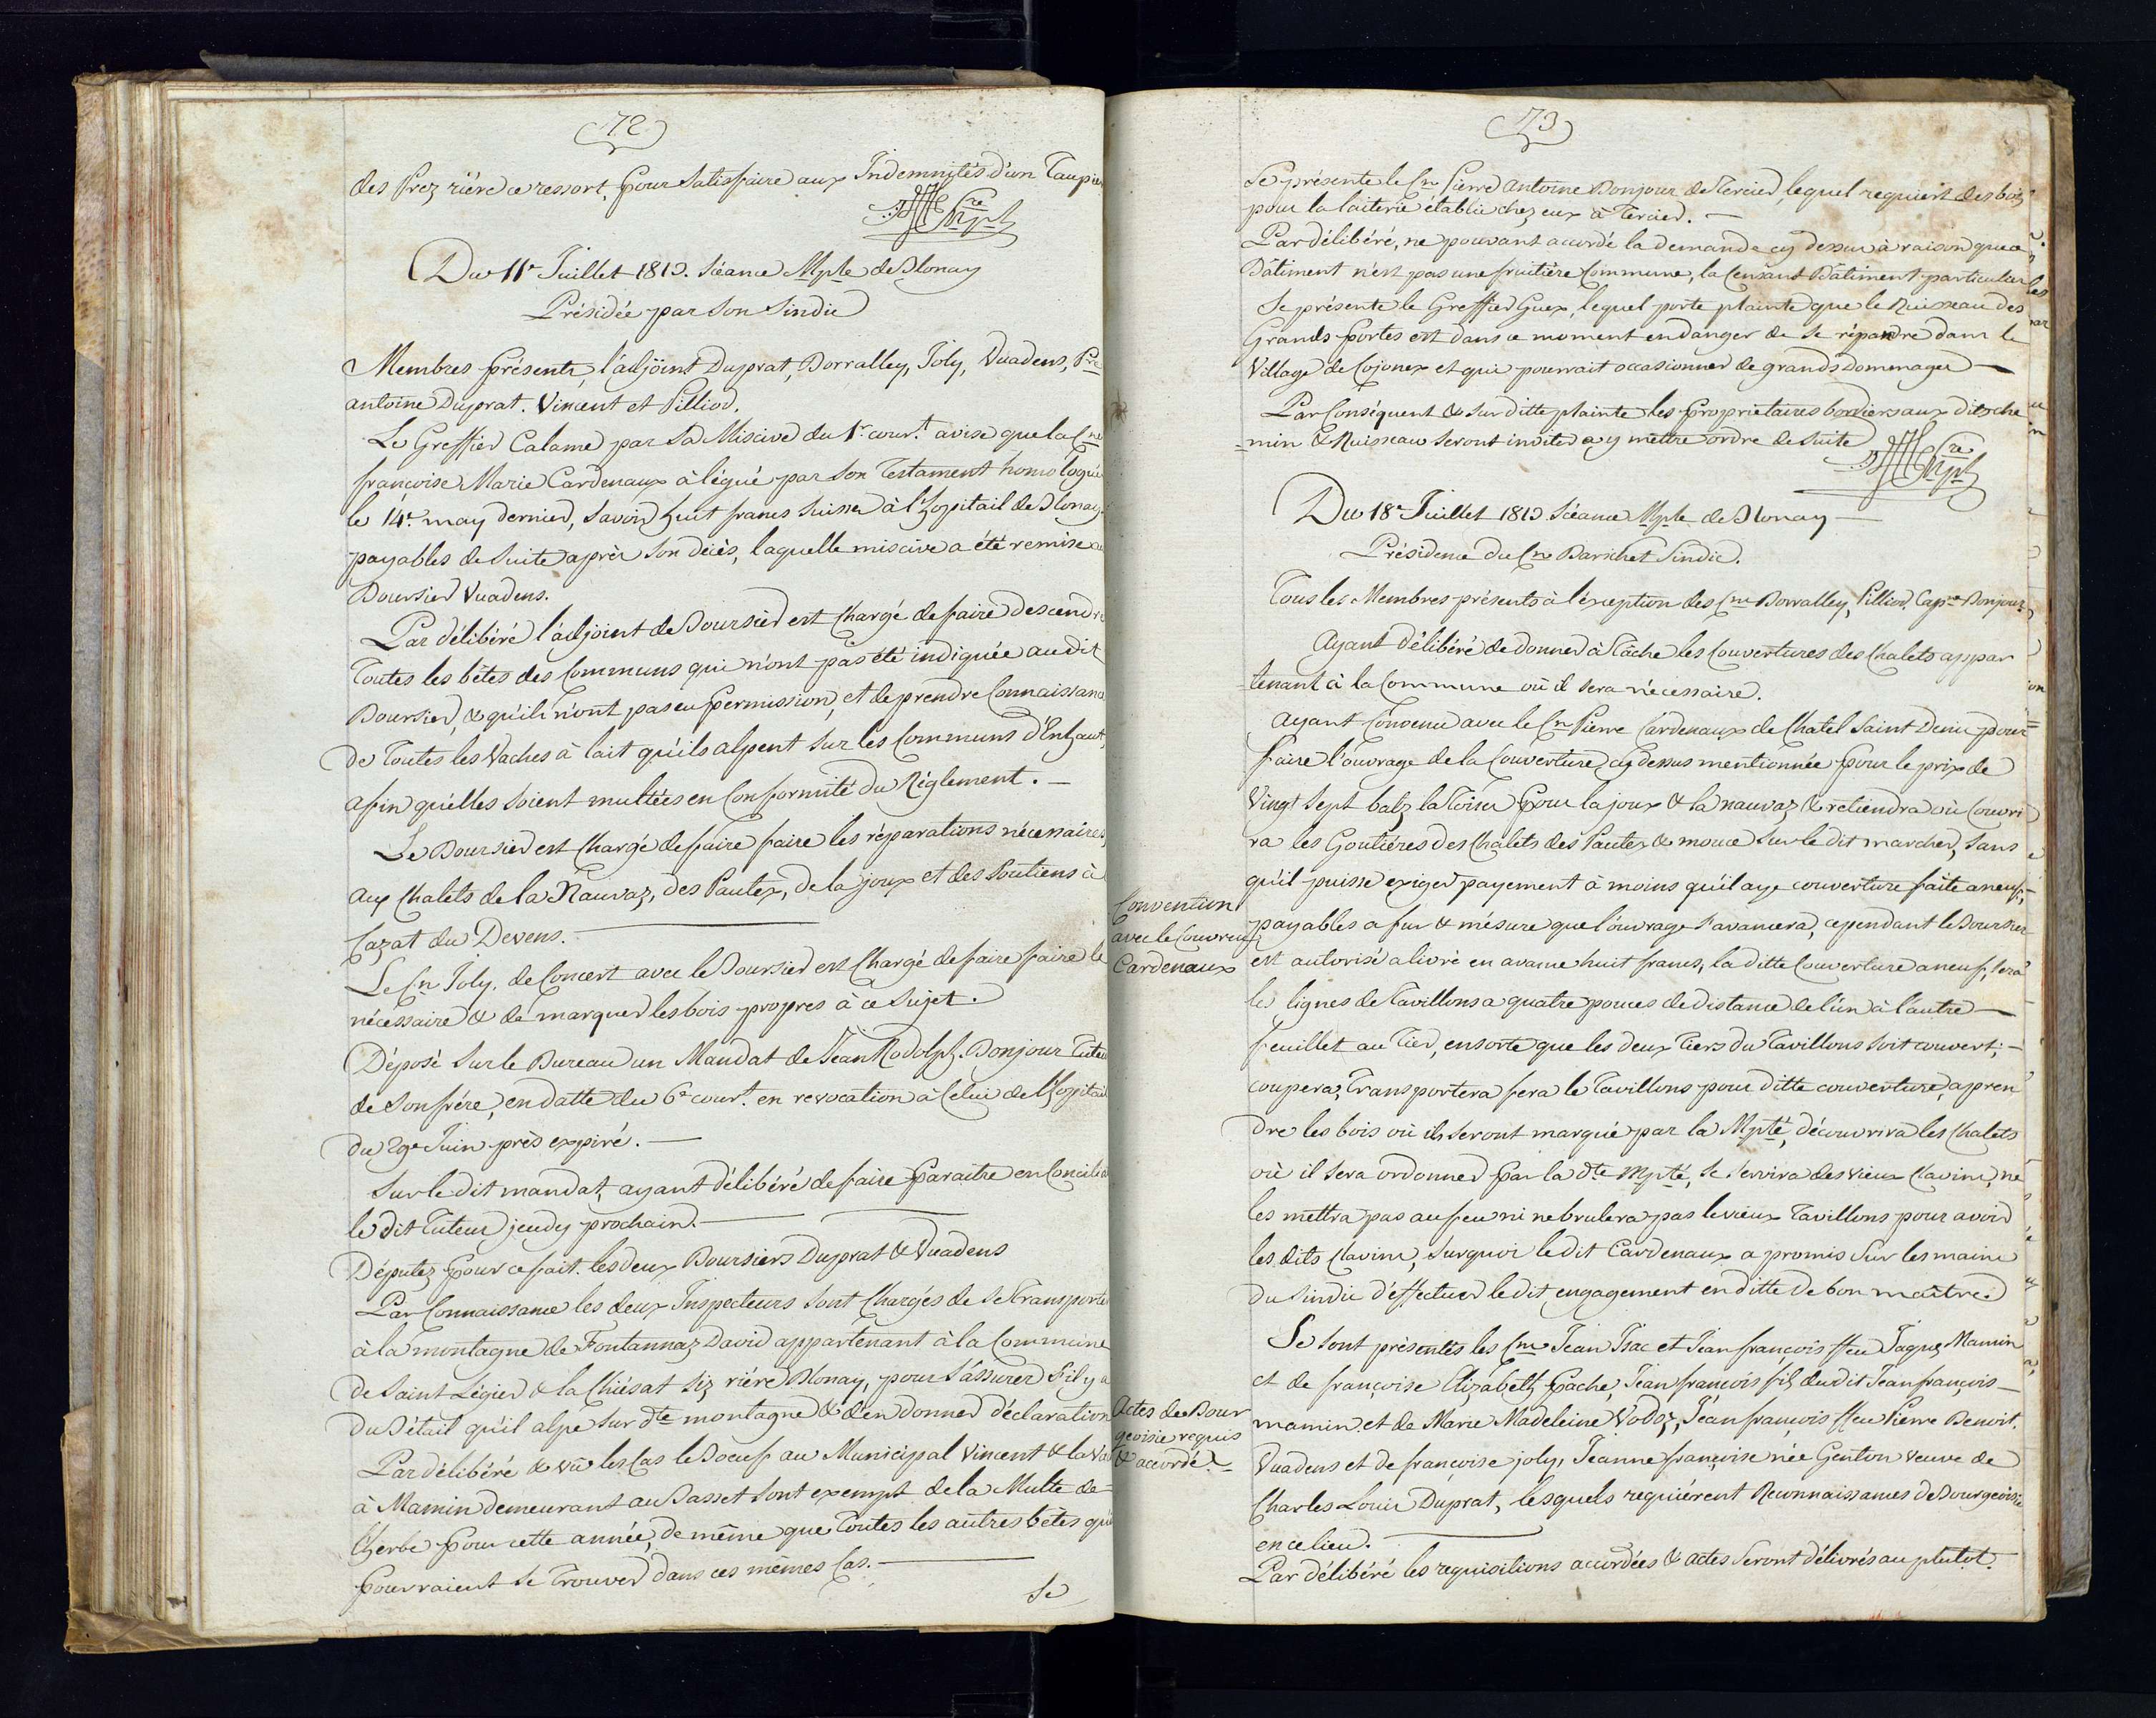 72
des Prez riére ce ressort, pour Satisfaire aux Indemnités d'un Taupier
Du 11e Juillet 1810. Séance Mple de Blonay
Présidée par Son Sindic
Membres présents, l'adjoint Duprat, Borralley, Joly, Vuadens, Pre
antoine Duprat. Vincent et Pilliod.
Le Greffier Calame par Sa Miscive du 1r. court. avise que la Cne
françoise Marie Cardenaux à légué par Son Testament homologué
le 14e. may dernier, Savoir huit francs Suisse à l'hopitail de Blonay
payables de Suite après Son décès, laquelle miscive a été remise au
Boursier Vuadens.
Par délibéré l'adjoint de Boursier est Chargé de faire descendre
Toutes les bêtes des Communs qui n'ont pas été indiquée audit
Boursier, & qu'ils n'ont pas eu permission, et de prendre Connaissance
de Toutes les Vaches à lait qu'ils alpent sur les Communs d'Enhaut,
afin qu'elles soient multées en Conformité du Réglement. —
Le Boursier est Chargé de faire faire les réparations nécessaires
aux Chalets de la Nauvaz, des Pautex, de la joux et des Soutiens à
Cazat du Devens.
Le Cn Joly. de Concert avec le Boursier est Chargé de faire faire le
nécessaire & de marquer les bois propres à ce Sujet.
Déposé Sur le Bureau un Mandat de Jean Rodolph Bonjour Tuteur
de Son frére, en datte du 6e court. en revocation à Celui de l'hopitail
du 29e Juin près expiré. —
Sur le dit mandat, ayant délibéré de faire paraitre en Concilia
le dit Tuteur jeudy prochain. —
Députez pour ce fait. les deux Boursiers Duprat & Vuadens
Par Connaissance les deux Inspecteurs Sont Chargés de Se Transporter
à la montagne de Fontannaz David appartenant à la Commune
de Saint Légier & la Chiésat Siz riére Blonay, pour S'assurer S'il y a
du Bétail qu'il alpe Sur dte montagne & d'en donner déclaration
Par délibéré & vû les Cas le Boeuf au Municipal Vincent & la Va
à Mamin demeurant au Basset Sont exempt de la Multe de
l'herbe pour cette année, de même que Toutes les autres bêtes qui
pourraient Se Trouver dans ces mêmes Cas. —
Se
73
Se présente le Cn Pierre Antoine Bonjour de Tercier, lequel requiert des bois
pour la laiterie établie chez eux à Tercier. —
Par délibéré, ne pouvant acordé la demande cy dessus à raison que ce
Bâtiment n'est pas une fruitière Commune, la Censant Bâtiment particulier
Se présente le Greffier Guex, lequel porte plainte que le Ruisseau des
Grands portes est dans ce moment en danger de se répandre dans le
Village de Cojonex et qui pourrait occasionner de grands Domenages —
Par Conséquent & Sur ditte plainte les Proprietaires bordiers aux dits che
=min & Ruisseau Seront invités a y mettre ordre de Suite
Du 18e Juillet 1810 Séance Mple de Blonay —
Présidence du Cn Barichet Sindic.
Tous les Membres présents à l'exeption des Cns Borralley, Pilliod, Cape Bonjour
Ayant délibéré de donner à Tâche les Couvertures des Chalets appar
=tenant à la Commune où il sera nécessaire.
Ayant Convenu avec le Cn Pierre Cardenaux de Chatel Saint Denis pour
faire l'ouvrage de la Couverture cy dessus mentionnée pour le prix de
Vingt Sept batz la Toise pour la joux & la nauvaz & retiendra où Couvri
ra les Goutiéres des Chalets des Pautex & mouce Sur le dit marcher, Sans
qu'il puisse exiger payement à moins qu'il aye couverture faite a neuf, —
Convention
avec le Couvreur
Cardenaux
payables a fur & mésure que l'ouvrage S'avancera, cependant le Boursier
est autorisé a livré en avance huit francs, la ditte Couverture a neuf, sera
les lignes de Tavillons a quatre pouces de distance de l'un à l'autre —
feuillet au Tier, ensorte que les deux Tiers du Tavillons Soit couvert; —
coupera, Transportera fera le Tavillons pour ditte couverture, a pren
dre les bois où ils Seront marqué par la Mpté, découvrira les Chalets
où il Sera ordonner par la dte Mpté, Se Servira des Vieux Clavins, ne
les mettra pas au feu ni ne brulera pas le vieux Tavillons pour avoir
les dits Clavins, Surquoi le dit Cardenaux a promis Sur les mains
du Sindic d'éffectuer le dit engagement en ditte de bon maître
Se Sont présentés les Cns Jean Isac et Jean françois ffeu Jaques Mamin
et de françoise Elizabeth Pache, Jean françois fils du dit Jean françois —
Actes de Bour
geoisie requis
& accordé. —
mamin et de Marie Madeleine Vodoz, Jean françois ffeu Pierre Benoit
Vuadens et de françoise joly, Jeanne françoise née Genton Veuve de
Charles Louis Duprat, lesquels requiérent Reconnaissances de Bourgeoisie
en ce lieu.
Par délibéré les requisitions accordées & actes Seront délivrés au plutot.